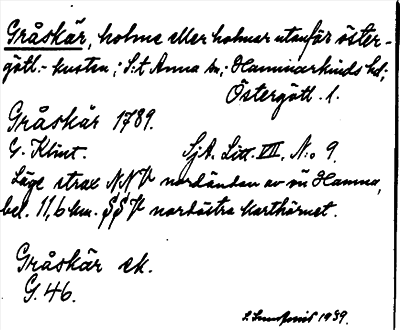 Gråskär, holme eller holmar utanför öster-
götl.- kusten; S:t Anna sn; Hammarkinds hd;
Östergötl. l.
Gråskär 1789.
G. Klint. SjA. Litt. VII, N:o 9.
Läge strax NNV nordändan av ön Hamna,
bel. 11,6 km. SSV nordöstra karthörnet.
Gråskär ek.
G. 46.
1939.